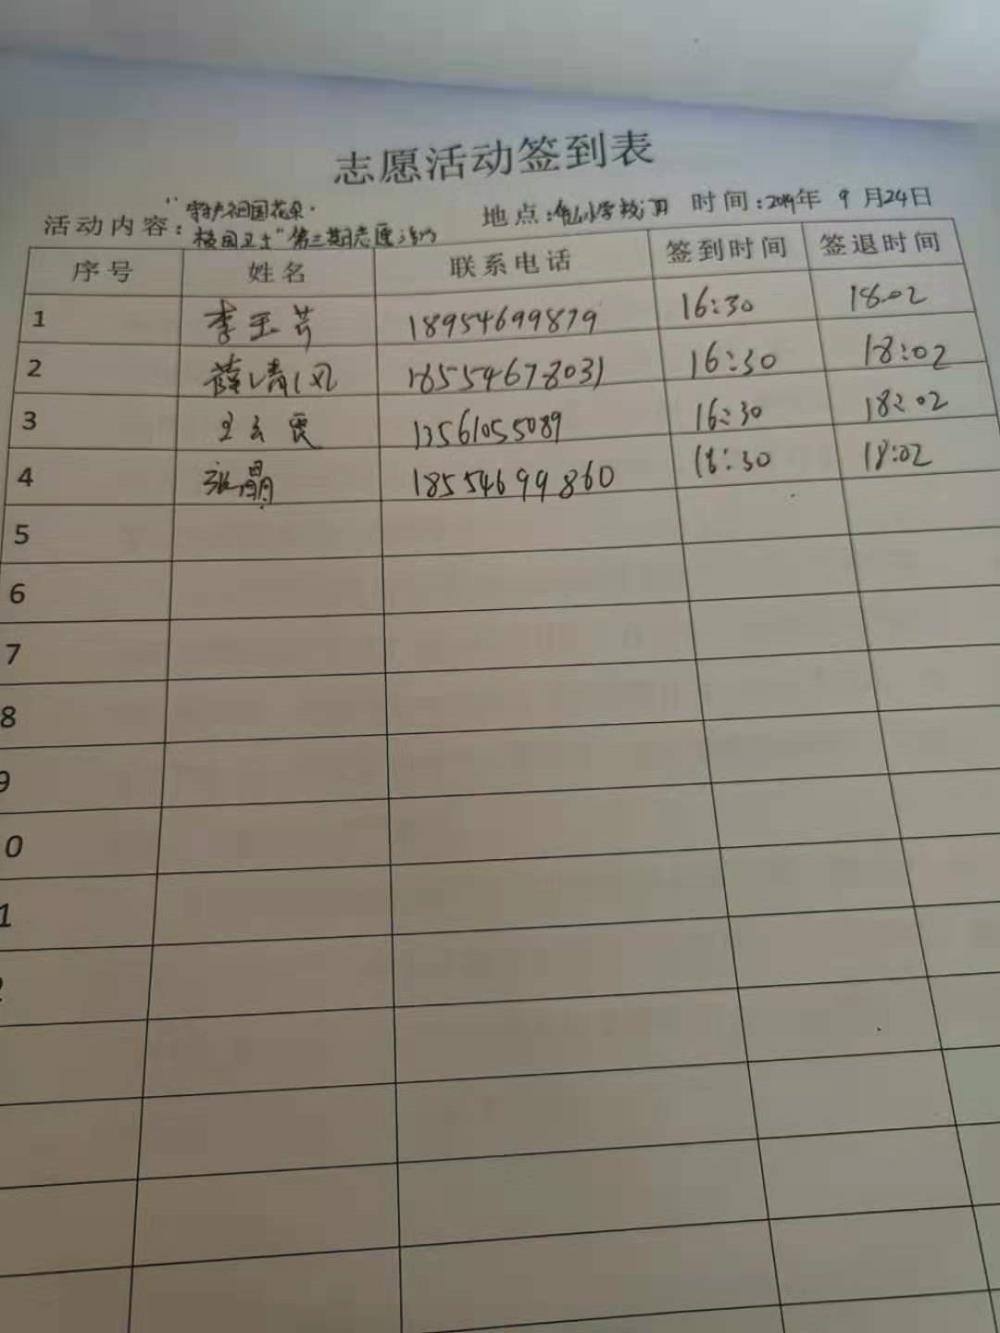 志愿活动签到表
活动内容：“守护祖国花朵·
校园卫士”第三期志愿活动
地点：小学校门 时间：2019年 9月24日
序号 姓名 联系电话 签到时间 签退时间
1 李玉芹 18954699879 16:30 18:02
2 薛清风 18554678031 16:30 18:02
3 王云霞 13561055089 16:30 18:02
4 张晶 18554699860 16:30 18:02
5
6
7
8
9
0
1
2